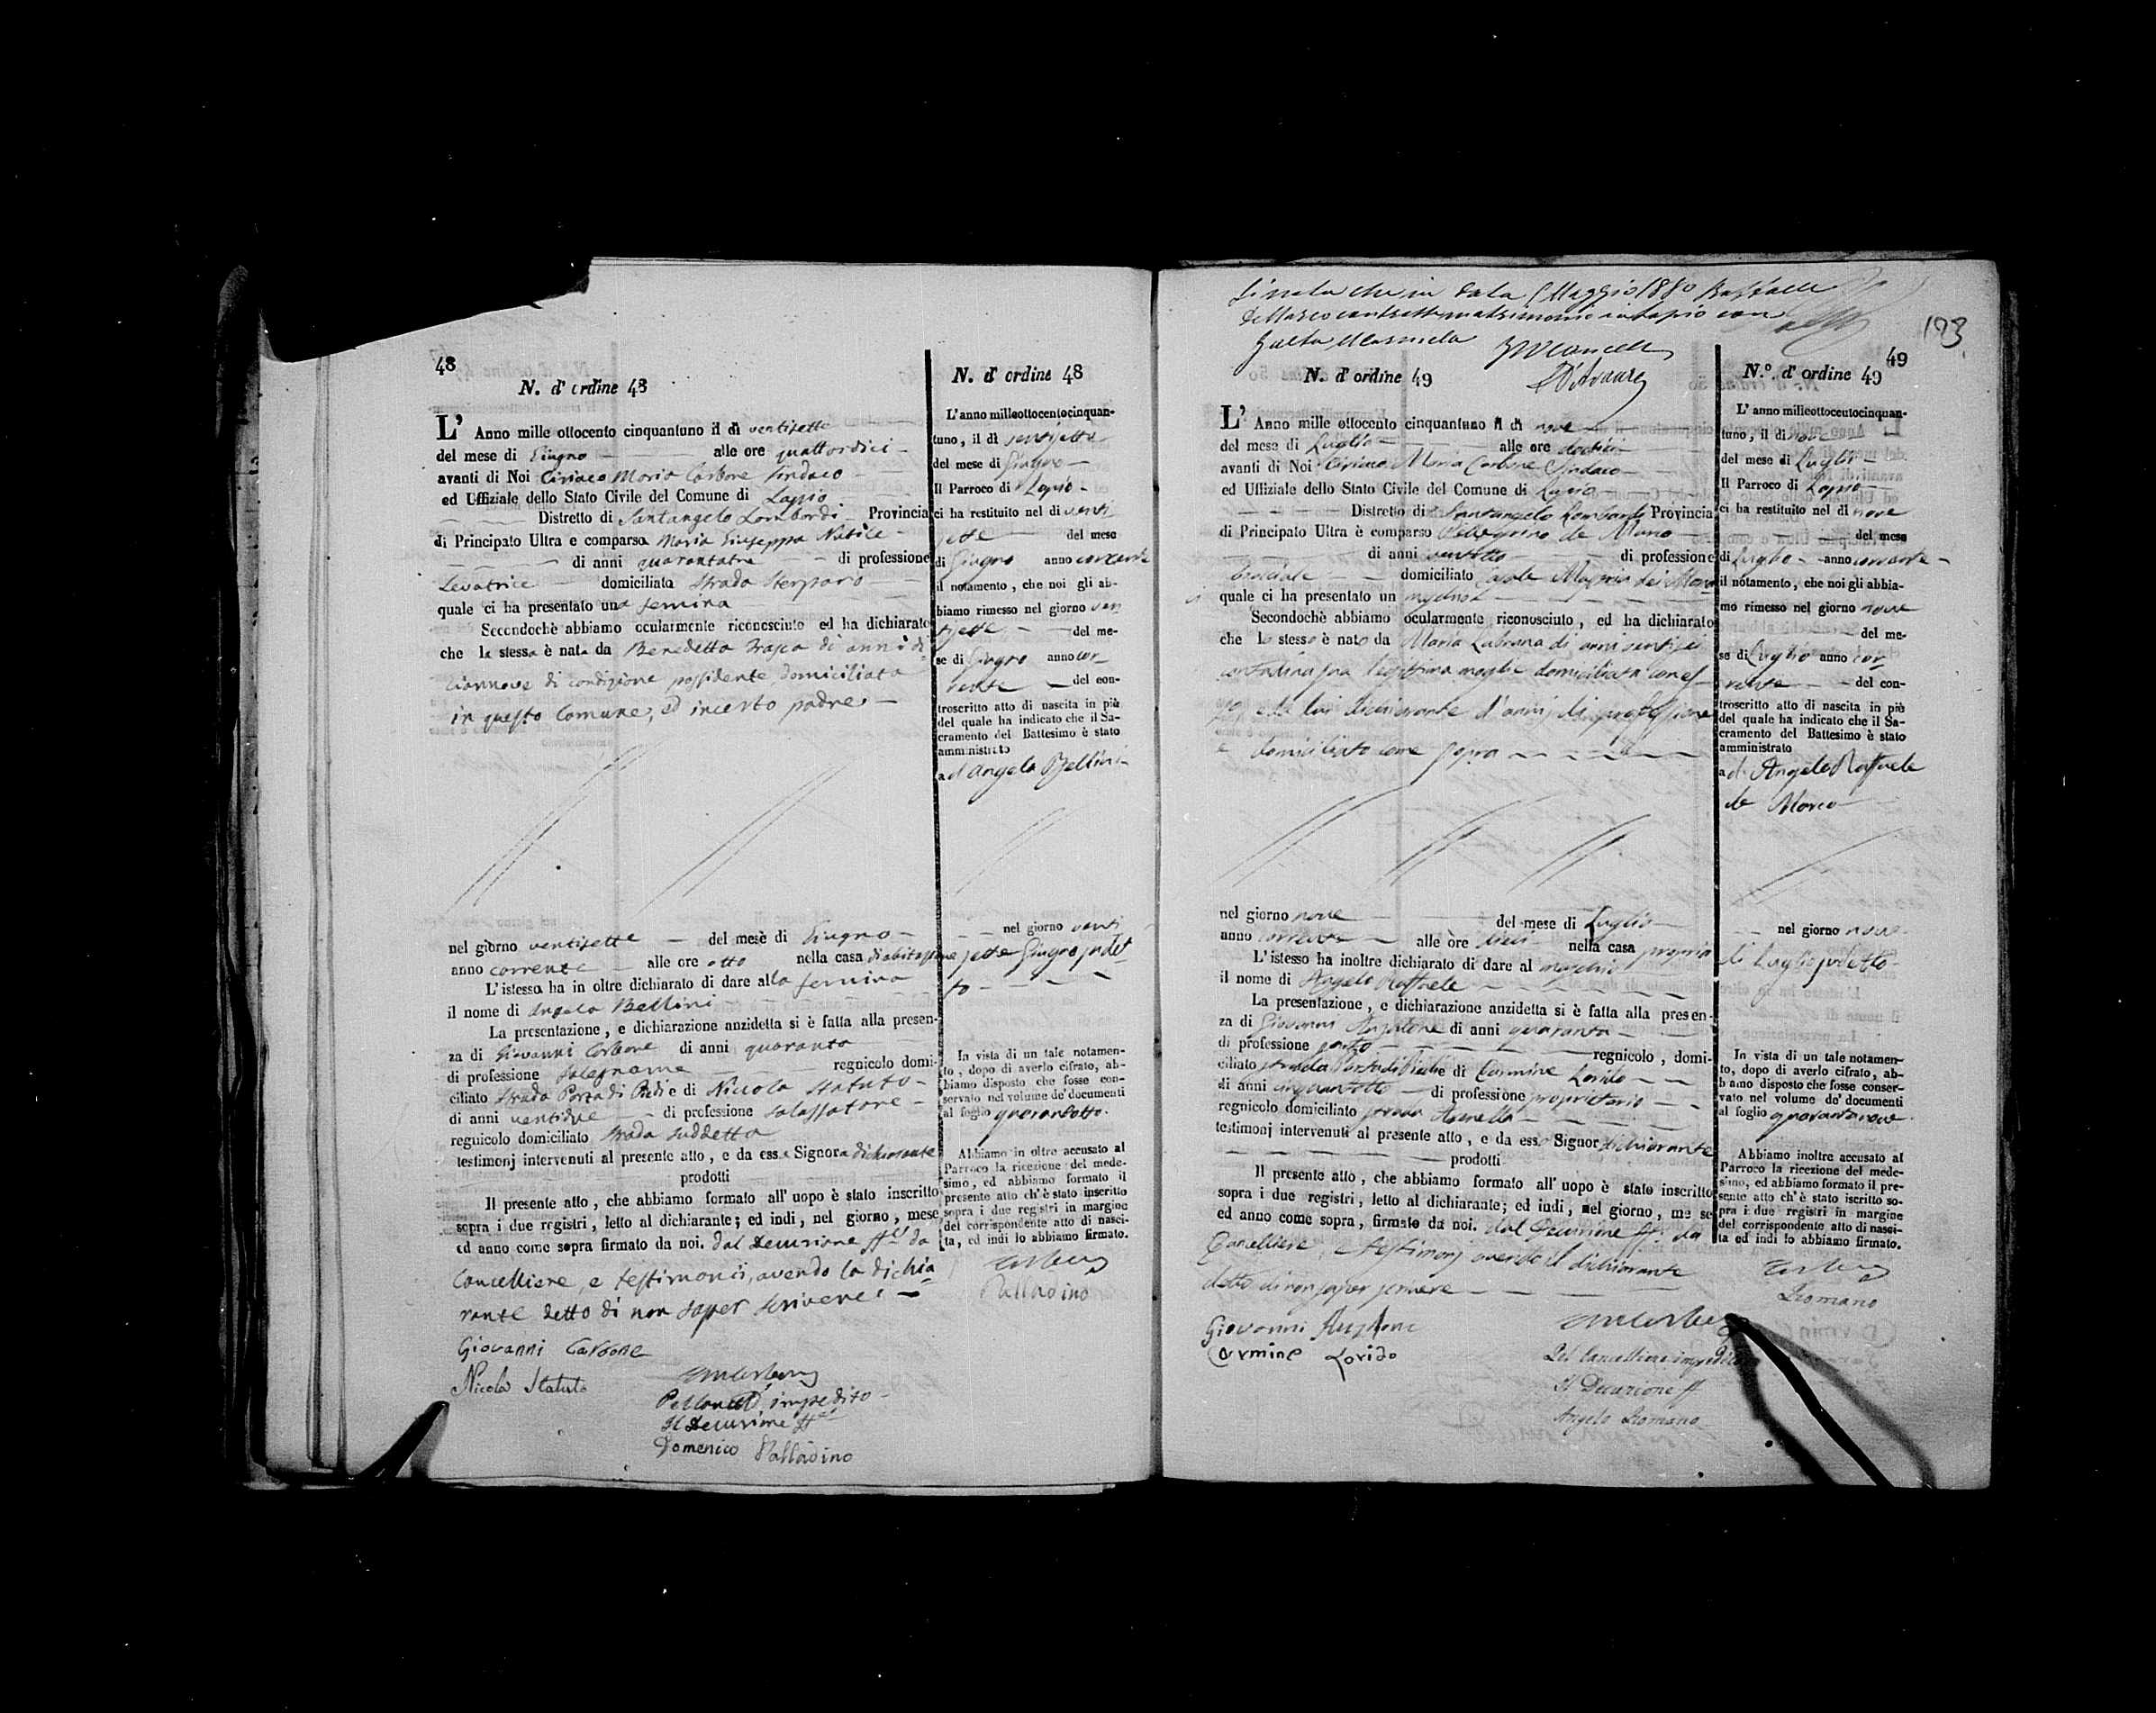 48
N. d' ordine 48
L' Anno mille ottocento cinquantuno il dì ventisette
del mese di Giugno alle ore quattordici
avanti di Noi Ciriaco Maria Carbone Sindaco
ed Uffiziale dello Stato Civile del Comune di Lapio
Distretto di Santangelo Lombardi Provincia
di Principato Ultra è comparsa Maria Giuseppa
di anni quarantatre di professione
Levatrice domiciliata strada
quale ci ha presentato una femina
Secondochè abbiamo ocularmente riconosciuto ed ha dichiarato
che la stessa è nata da Benedetta di anni di
ciannove di condizione possidente, domiciliata
in questo Comune, ed incerto padre
nel giorno ventisette del mese di Giugno
anno corrente alle ore otto nella casa di abitazione
L'istessa ha in oltre dichiarato di dare alla femina
il nome di Angela Bellini
La presentazione, e dichiarazione anzidetta si è fatta alla presen-
za di Giovanni Carbone di anni quaranta
di professione falegname regnicolo domi-
ciliato strada Porta di Piedi e di Niccola Statuto
di anni ventidue di professione salassatore
regnicolo domiciliato strada suddetta
testimonj intervenuti al presente atto, e da essa Signora dichiarante
prodotti
Il presente atto, che abbiamo formato all' uopo è stato inscritto
sopra i due registri, letto al dichiarante; ed indi, nel giorno, mese
ed anno come sopra firmato da noi. dal Decurione ff. da
Cancelliere, e testimonii, avendo la dichia
rante detto di non saper scrivere
Giovanni Carbone
Nicola Statuto
impedito
Il Decurione ff.
Domenico Palladino
N. d' ordine 48
L'anno milleottocentocinquan-
tuno, il dì ventisette
del mese di Giugno
Il Parroco di Lapio
ci ha restituito nel dì venti
sette del mese
di Giugno anno corrente
il notamento, che noi gli ab-
biamo rimesso nel giorno ven
tisette del me-
se di Giugno anno cor-
rente del con-
troscritto atto di nascita in piè
del quale ha indicato che il Sa-
cramento del Battesimo è stato
amministrato
ad Angela Bellini
nel giorno venti
sette Giugno sudet
to
In vista di un tale notamen-
to, dopo di averlo cifrato, ab-
biamo disposto che fosse con-
servato nel volume de' documenti
al foglio quarantotto.
Abbiamo in oltre accusato al
Parroco la ricezione del mede-
simo, ed abbiamo formato il
presente atto ch' è stato inscritto
sopra i due registri in margine
del corrispondente atto di nasci-
ta, ed indi lo abbiamo firmato.
Palladino
Maggio 1880 Raffaele
matrimonio in Lapio con
193
49
N. d' ordine 49
L' Anno mille ottocento cinquantuno il dì nove
del mese di Luglio alle ore dodici
avanti di Noi Ciriaco Maria Carbone Sindaco
ed Uffiziale dello Stato Civile del Comune di Lapio
Distretto di Santangelo Lombardi Provincia
di Principato Ultra è comparso Pellegrino de Marco
di anni ventotto di professione
bracciale domiciliato
quale ci ha presentato un maschio
Secondochè abbiamo ocularmente riconosciuto, ed ha dichiarato
che lo stesso è nato da Maria di anni ventisei
contadina sua legittima moglie domiciliata con es-
so e da lui dichiarante d'anni, di professione
e domiciliato come sopra
nel giorno nove del mese di Luglio
anno corrente alle ore dieci nella casa propria
L'istesso ha inoltre dichiarato di dare al maschio
il nome di Angelo Raffaele
La presentazione, e dichiarazione anzidetta si è fatta alla presen-
za di Giovanni di anni quaranta
di professione regnicolo, domi-
ciliato strada Porta di Piedi e di Carmine Lorido
di anni cinquantotto di professione proprietario
regnicolo domiciliato strada
testimonj intervenuti al presente atto, e da esso Signor dichiarante
prodotti
Il presente atto, che abbiamo formato all' uopo è stato inscritto
sopra i due registri, letto al dichiarante; ed indi, nel giorno, me se
ed anno come sopra, firmato da noi. dal Decurione ff. da
Cancelliere, e testimonj avendo il dichiarante
detto di non saper scrivere
Giovanni
Carmine Lorido
Pel Cancelliere impedito
Il Decurione ff.
Angelo Romano
N.° d' ordine 49
L' anno milleottocentocinquan-
tuno, il dì nove
del mese di Luglio
Il Parroco di Lapio
ci ha restituito nel dì nove
del mese
di Luglio anno corrente
il notamento, che noi gli abbia-
mo rimesso nel giorno nove
del me-
se di Luglio anno cor-
rente del con-
troscritto atto di nascita in piè
del quale ha indicato che il Sa-
cramento del Battesimo è stato
amministrato
ad Angelo Raffaele
de Marco
nel giorno nove
di Luglio sudetto
In vista di un tale notamen-
to, dopo di averlo cifrato, ab-
biamo disposto che fosse conser-
vato nel volume de' documenti
al foglio quarantanove
Abbiamo inoltre accusato al
Parroco la ricezione del mede-
simo, ed abbiamo formato il pre-
sente atto ch' è stato iscritto so-
pra i due registri in margine
del corrispondente atto di nasci-
ta ed indi lo abbiamo firmato.
Romano